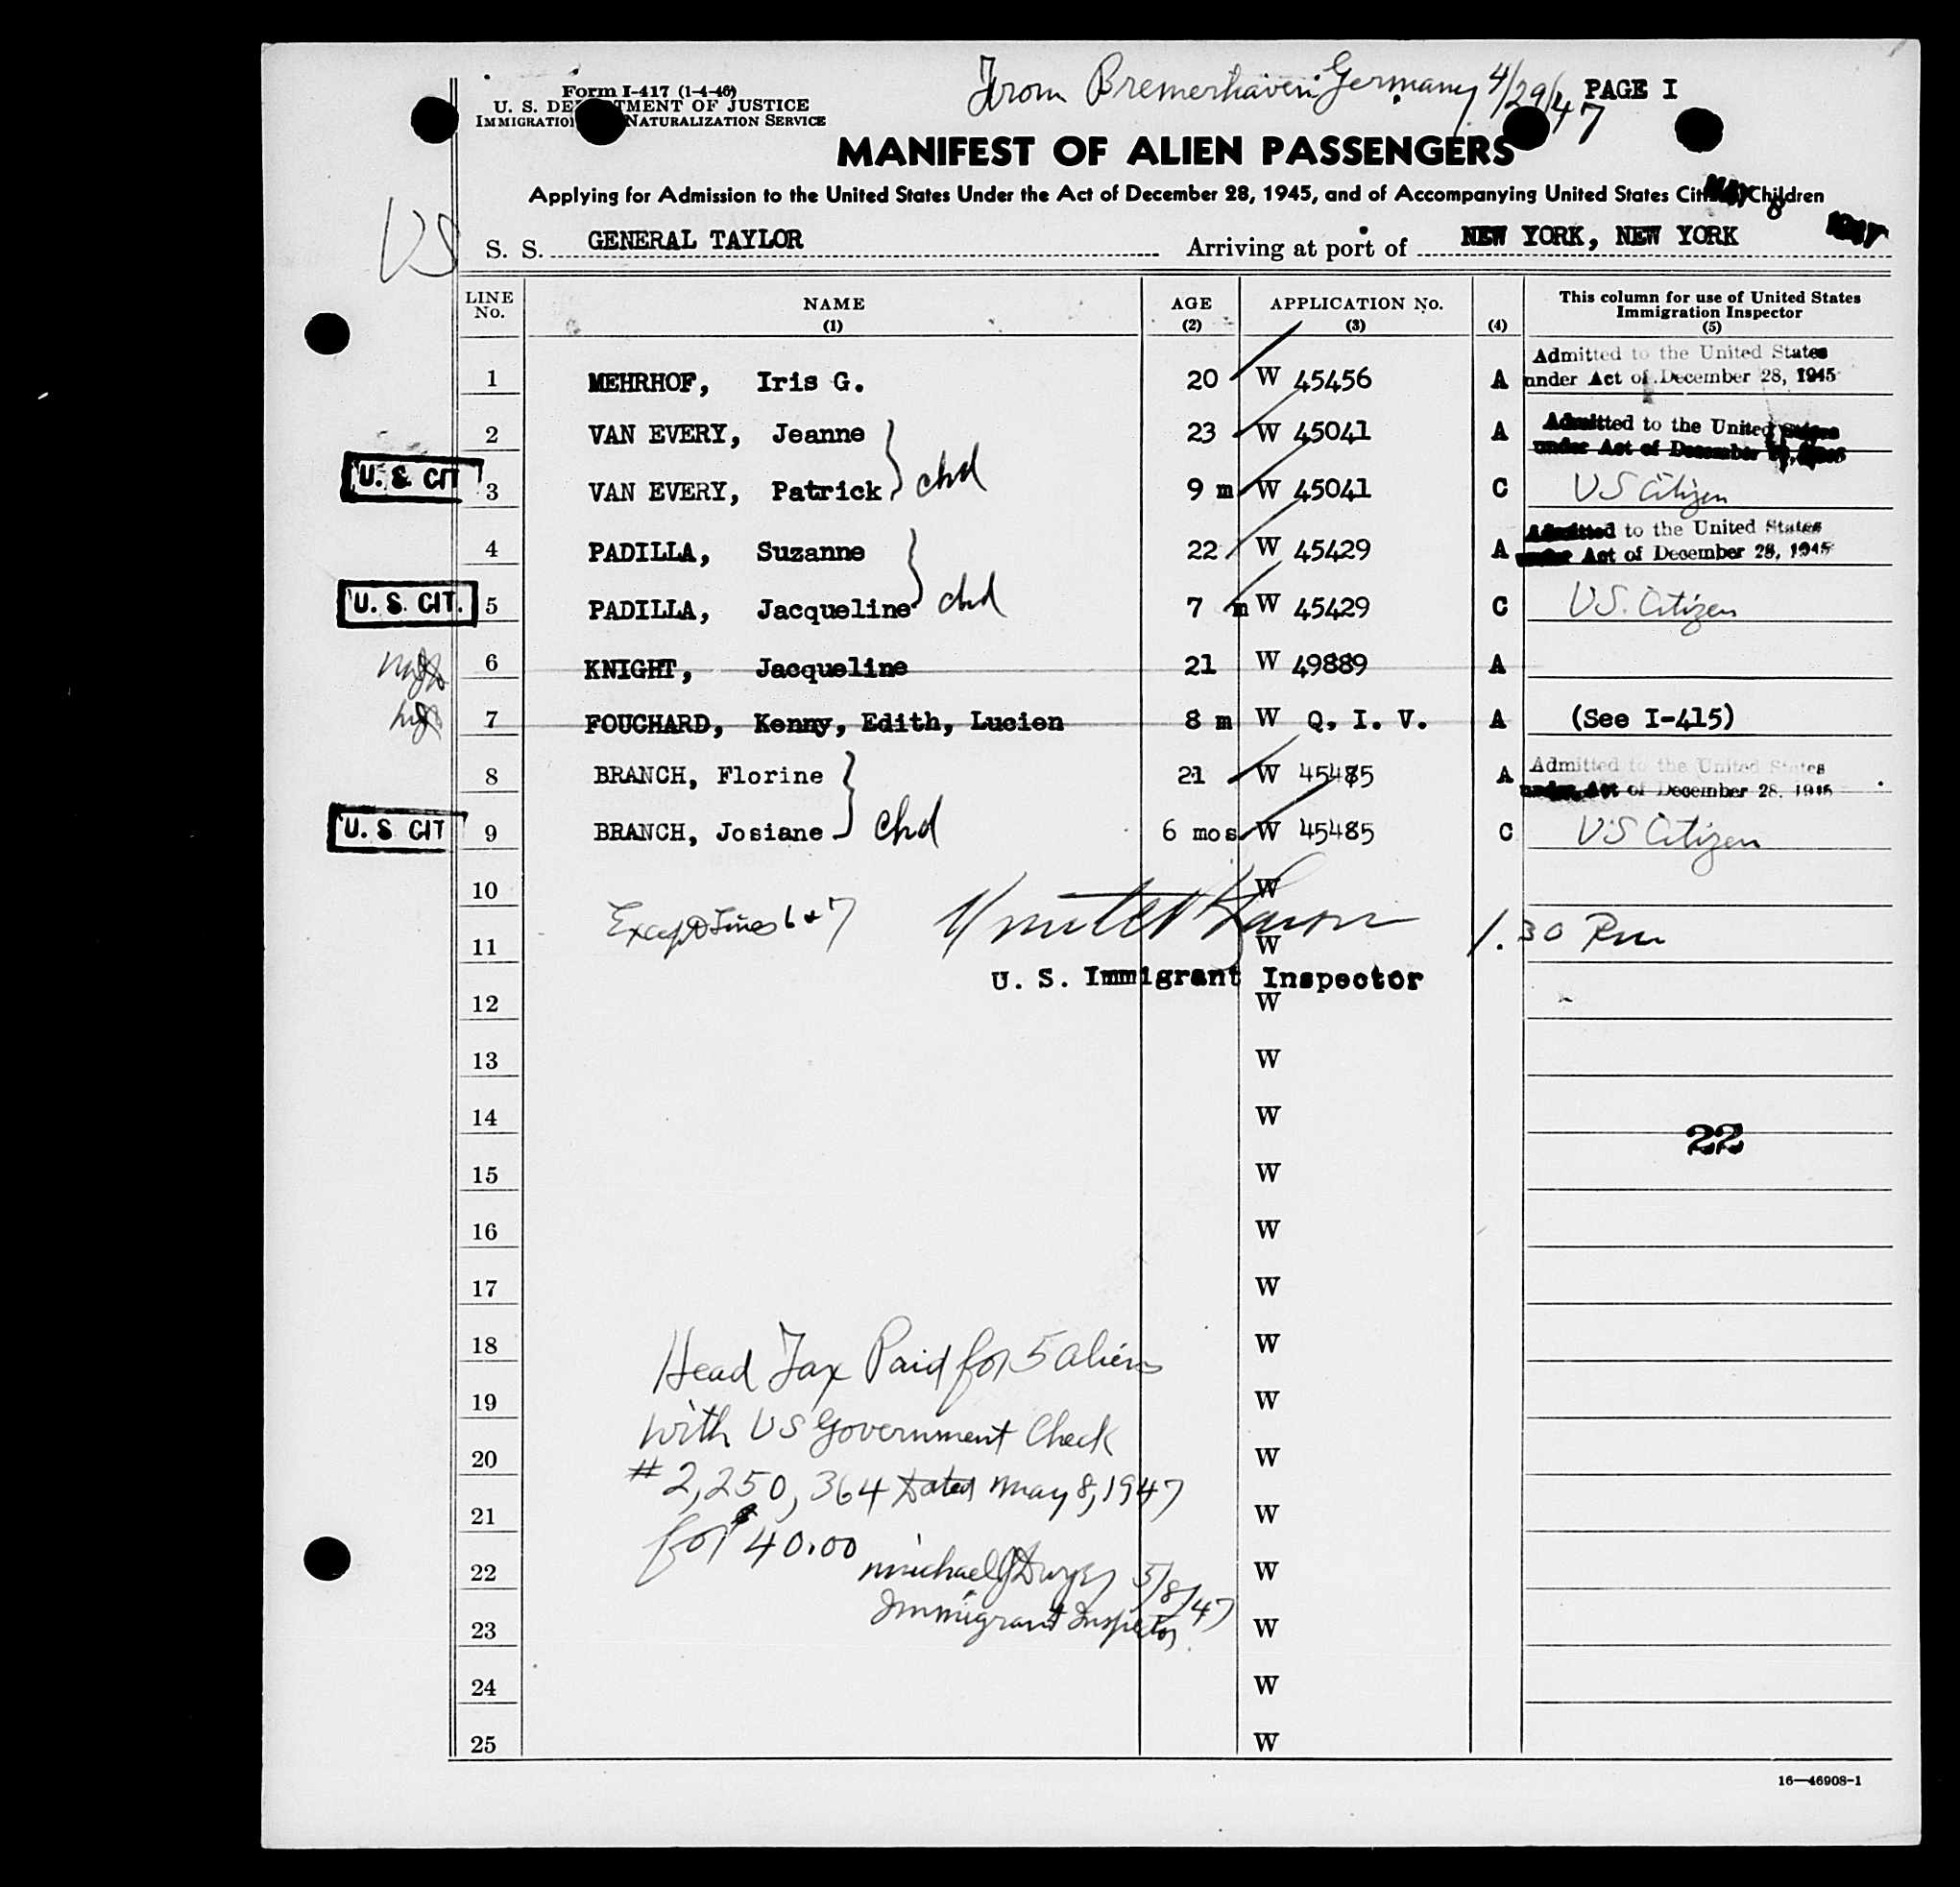 From Bremerhaven Germany 4/29/47
PAGE I
Form I-417 (1-4-46)
U. S. DEPARTMENT OF JUSTICE
IMMIGRATION NATURALIZATION SERVICE
MANIFEST OF ALIEN PASSENGERS
Applying for Admission to the United States Under the Act of December 28, 1945, and of Accompanying United States Citizen Children
MAY 8
US
S. S. GENERAL TAYLOR Arriving at port of NEW YORK, NEW YORK
LINE No. NAME (1) AGE (2) APPLICATION No. (3) (4) This column for use of United States Immigration Inspector (5)
1 MEHRHOF, Iris G. 20 W 45456 A Admitted to the United States under Act of December 28, 1945
2 VAN EVERY, Jeanne 23 W 45041 A Admitted to the United States under Act of December 28, 1945
U. S. CIT 3 VAN EVERY, Patrick chd 9 m W 45041 C US Citizen
4 PADILLA, Suzanne 22 W 45429 A Admitted to the United States under Act of December 28, 1945
U. S. CIT. 5 PADILLA, Jacqueline chd 7 m W 45429 C U.S. Citizen
6 KNIGHT, Jacqueline 21 W 49889 A
7 FOUCHARD, Kenny, Edith, Lucien 8 m W Q. I. V. A (See I-415)
8 BRANCH, Florine 21 W 45485 A Admitted to the United States under Act of December 28, 1945
U. S CIT 9 BRANCH, Josiane chd 6 mos W 45485 C US Citizen
10 W
Except Lines 6 & 7 1.30 Pm
11 W
U. S. Immigrant Inspector
12 W
13 W
14 W
22
15 W
16 W
17 W
18 W
Head Tax Paid for 5 aliens
19 W
with US Government Check
20 W
# 2,250,364 Dated May 8, 1947
21 W
for $40.00
22 W
Michael J Dwyer 5/8/47
Immigrant Inspector
23 W
24 W
25 W
16—46908-1